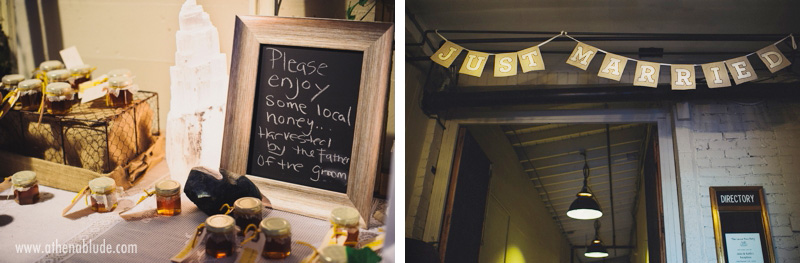 Please
enjoy
some local
honey...
Harvested
by the Father
Of the groom
www.athenablude.com
JUST MARRIED
DIRECTORY